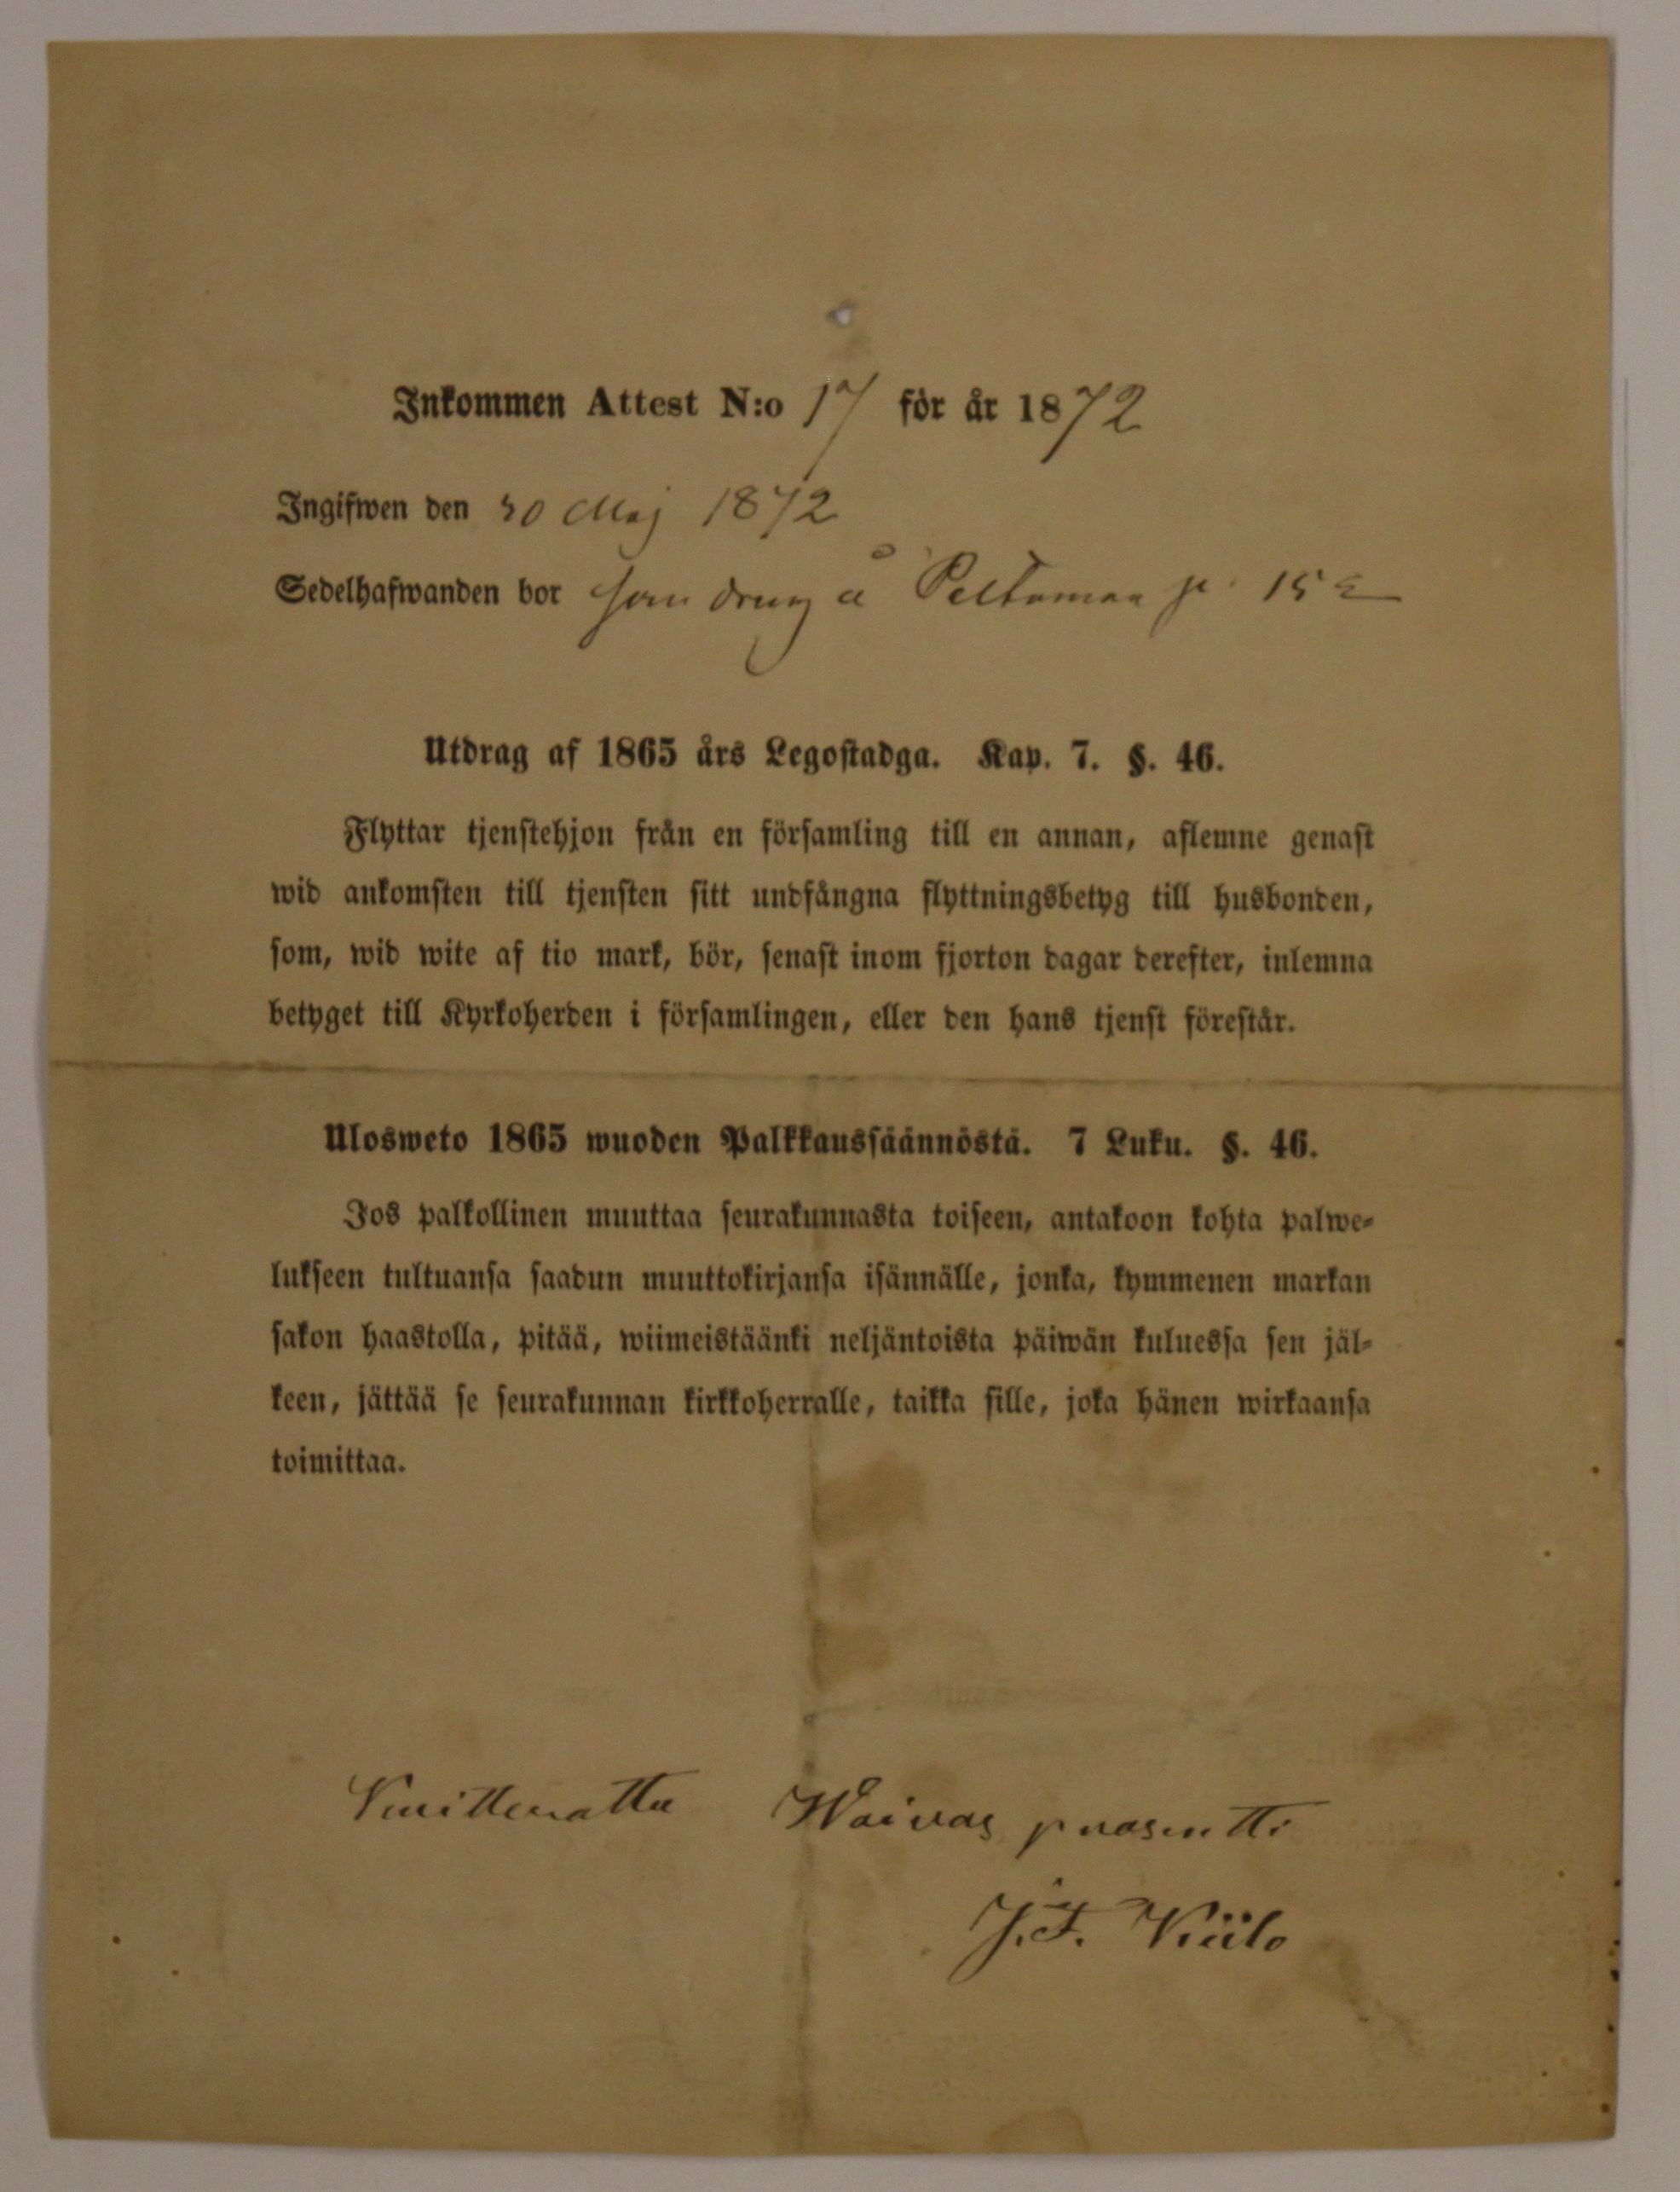 Inkommen Attest N:o 17 för år 1872
Ingifwen den 30 Maj 1872
Sedelhafwanden bor som dreng å Peltomaa p. 15
Utdrag af 1865 års Legostadga. Kap. 7. §. 46.
Flyttar tjenstehjon från en församling till en annan, aflemne genast
wid ankomsten till tjensten sitt undfångna flyttningsbetyg till husbonden,
som, wid wite af tio mark, bör, senast inom fjorton dagar derefter, inlemna
betyget till Kyrkoherden i församlingen, eller den hans tjenst förestår.
Ulosweto 1865 wuoden Palkkaussäännöstä. 7 Luku. §. 46.
Jos palkollinen muuttaa seurakunnasta toiseen, antakoon kohta palwe-
lukseen tultuansa saadun muuttokirjansa isännälle, jonka, kymmenen markan
sakon haastolla, pitää, wiimeistäänki neljäntoista päiwän kuluessa sen jäl-
keen, jättää se seurakunnan kirkkoherralle, taikka sille, joka hänen wirkaansa
toimittaa.
Waivas
J. F.